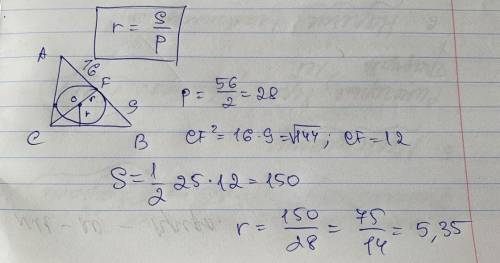 r = S/P
A
16
F
o r
r
9
C
B
P = 56/2 = 28
CF² = 16·9 = √144; CF = 12
S = 1/2 25·12 = 150
r = 150/28 = 75/14 = 5,35